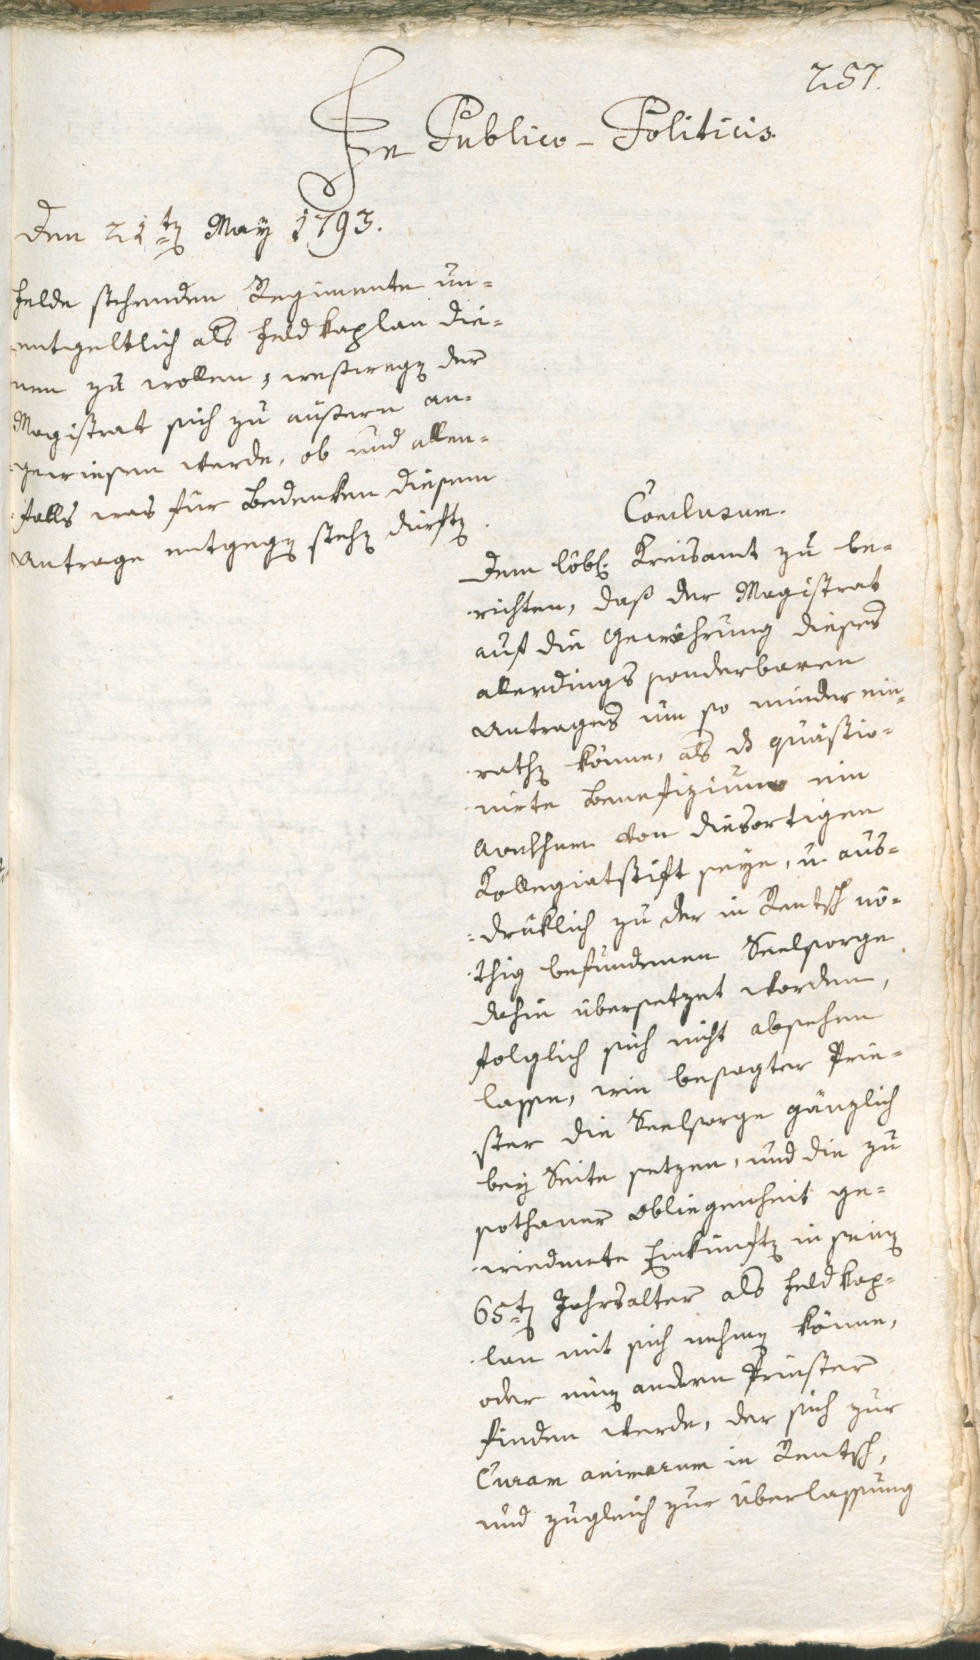 257.
In Publico-Politicis.
Den 21t May 1793.
Felde stehenden Regimente un=
=entgeltlich als Feldkaplan die=
nen zu wollen, weßweg der
Magistrat sich zu äußern an=
=gewiesen werde, ob und allen=
=falls was für Bedenken diesem
Antrage entgeg steh dürft.
Conclusum.
Dem löbl. Kreisamt zu be=
richten, daß der Magistrat
auf die Gewährung dieses
allerdings sonderbaren
Antrages um so minder ein=
rath könne, als ds quästio=
nirte Benefizium ein
von diesortigen
Kollegiatstift seye, u. aus=
=drüklich zu der in Rentsch nö=
thig befundenen Seelsorge
dahin übersetzet worden,
folglich sich nicht absehen
lasse, wie besagter Prie=
ster die Seelsorge gänzlich
bey Seite setzen, und die zu
sothaner Obliegenheit ge=
wiedmete Einkünft in sein
65t Jahrsalter als Feldkap=
lan mit sich nehm könne,
oder ein andern Priester
finden werde, der sich zur
Curam animarum in Rentsch,
und zugleich zur Überlassung